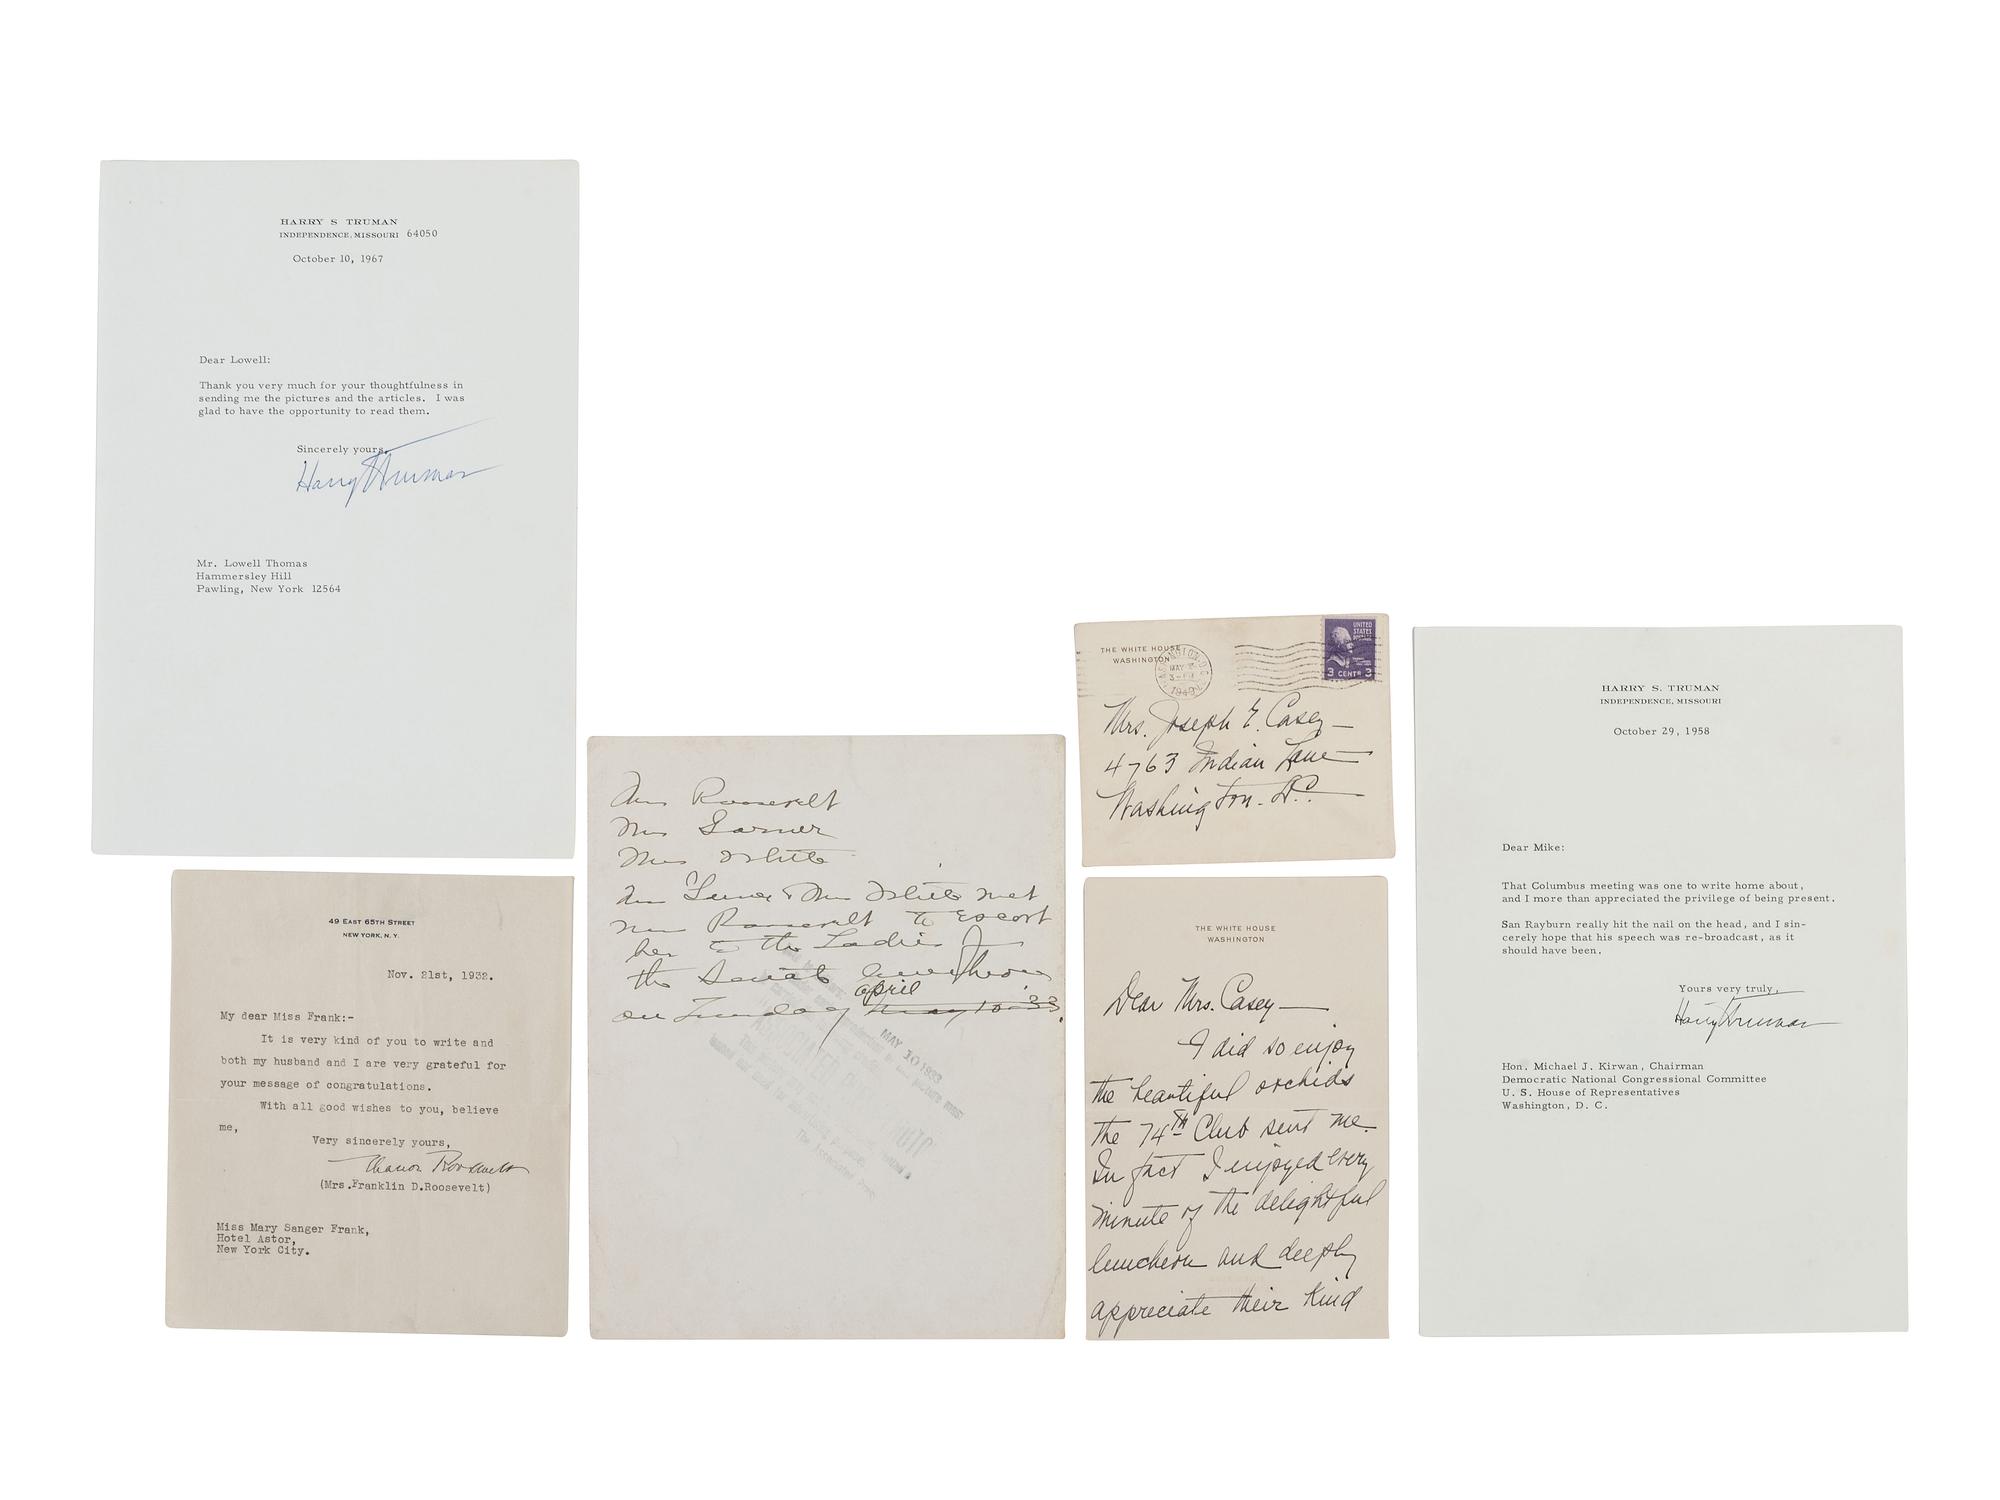 HARRY S TRUMAN
INDEPENDENCE, MISSOURI 64050
October 10, 1967
Dear Lowell:
Thank you very much for your thoughtfulness in
sending me the pictures and the articles. I was
glad to have the opportunity to read them.
Sincerely yours,
Harry S Truman
Mr. Lowell Thomas
Hammersley Hill
Pawling, New York 12564
49 EAST 65TH STREET
NEW YORK, N. Y.
Nov. 21st, 1932.
My dear Miss Frank:-
It is very kind of you to write and
both my husband and I are very grateful for
your message of congratulations.
With all good wishes to you, believe
me,
Very sincerely yours,
Eleanor Roosevelt
(Mrs.Franklin D.Roosevelt)
Miss Mary Sanger Frank,
Hotel Astor,
New York City.
Mrs Roosevelt
Mrs Garner
Mrs White
Mrs Garner & Mrs White met
Mrs Roosevelt to escort
her to the Ladies of
the Senate luncheon
april
on Tuesday May 10-33.
MAY 10 1933
The
Associated Press
THE WHITE HOUSE
WASHINGTON
WASHINGTON, D.C.
MAY
1949
UNITED
STATES
POSTAGE
3 CENTS 3
Mrs. Joseph E. Casey—
4763 Indian Lane
Washington. D.C.
THE WHITE HOUSE
WASHINGTON
Dear Mrs. Casey—
I did so enjoy
the beautiful orchids
the 74TH Club sent me.
In fact I enjoyed every
minute of the delightful
luncheon and deeply
appreciate their kind
HARRY S. TRUMAN
INDEPENDENCE, MISSOURI
October 29, 1958
Dear Mike:
That Columbus meeting was one to write home about,
and I more than appreciated the privilege of being present.
San Rayburn really hit the nail on the head, and I sin-
cerely hope that his speech was re-broadcast, as it
should have been.
Yours very truly,
Harry S Truman
Hon. Michael J. Kirwan, Chairman
Democratic National Congressional Committee
U. S. House of Representatives
Washington, D. C.